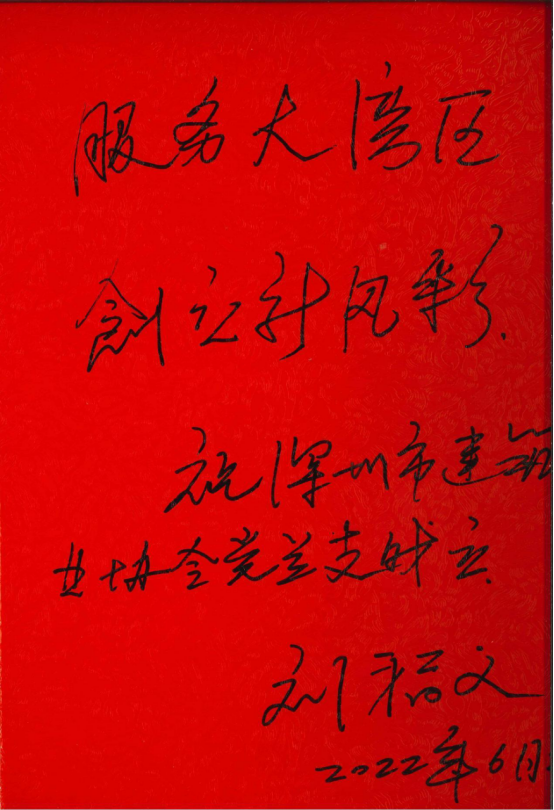 服务大湾区
創立新风彩.
祝深圳市建筑
业协会党总支成立.
刘 文
2022年6月.